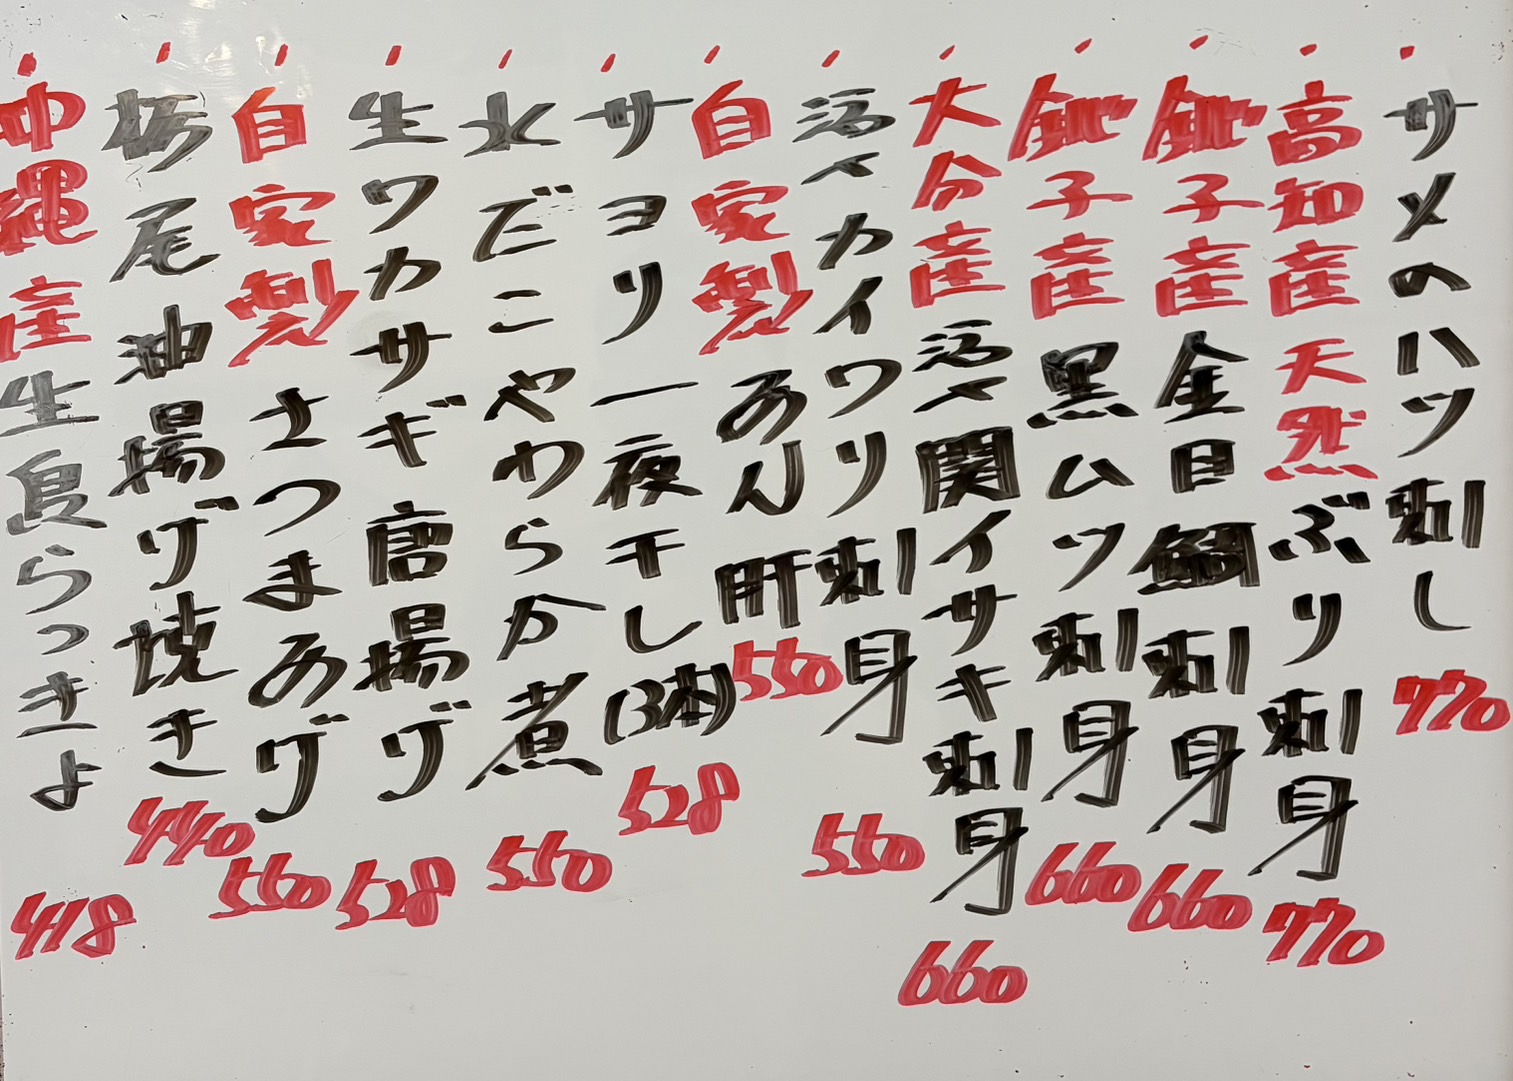 ・サメのハツ刺し 770
・高知産天然ぶり刺身 770
・銚子産金目鯛刺身 660
・銚子産黒ムツ刺身 660
・大分産活〆関イサキ刺身 660
・活〆カイワリ刺身 550
・自家製あん肝 550
・サヨリ一夜干し(3本) 528
・水だこやわらか煮 550
・生ワカサギ唐揚げ 528
・自家製さつまあげ 550
・栃尾油揚げ焼き 440
・沖縄産生島らっきょ 418